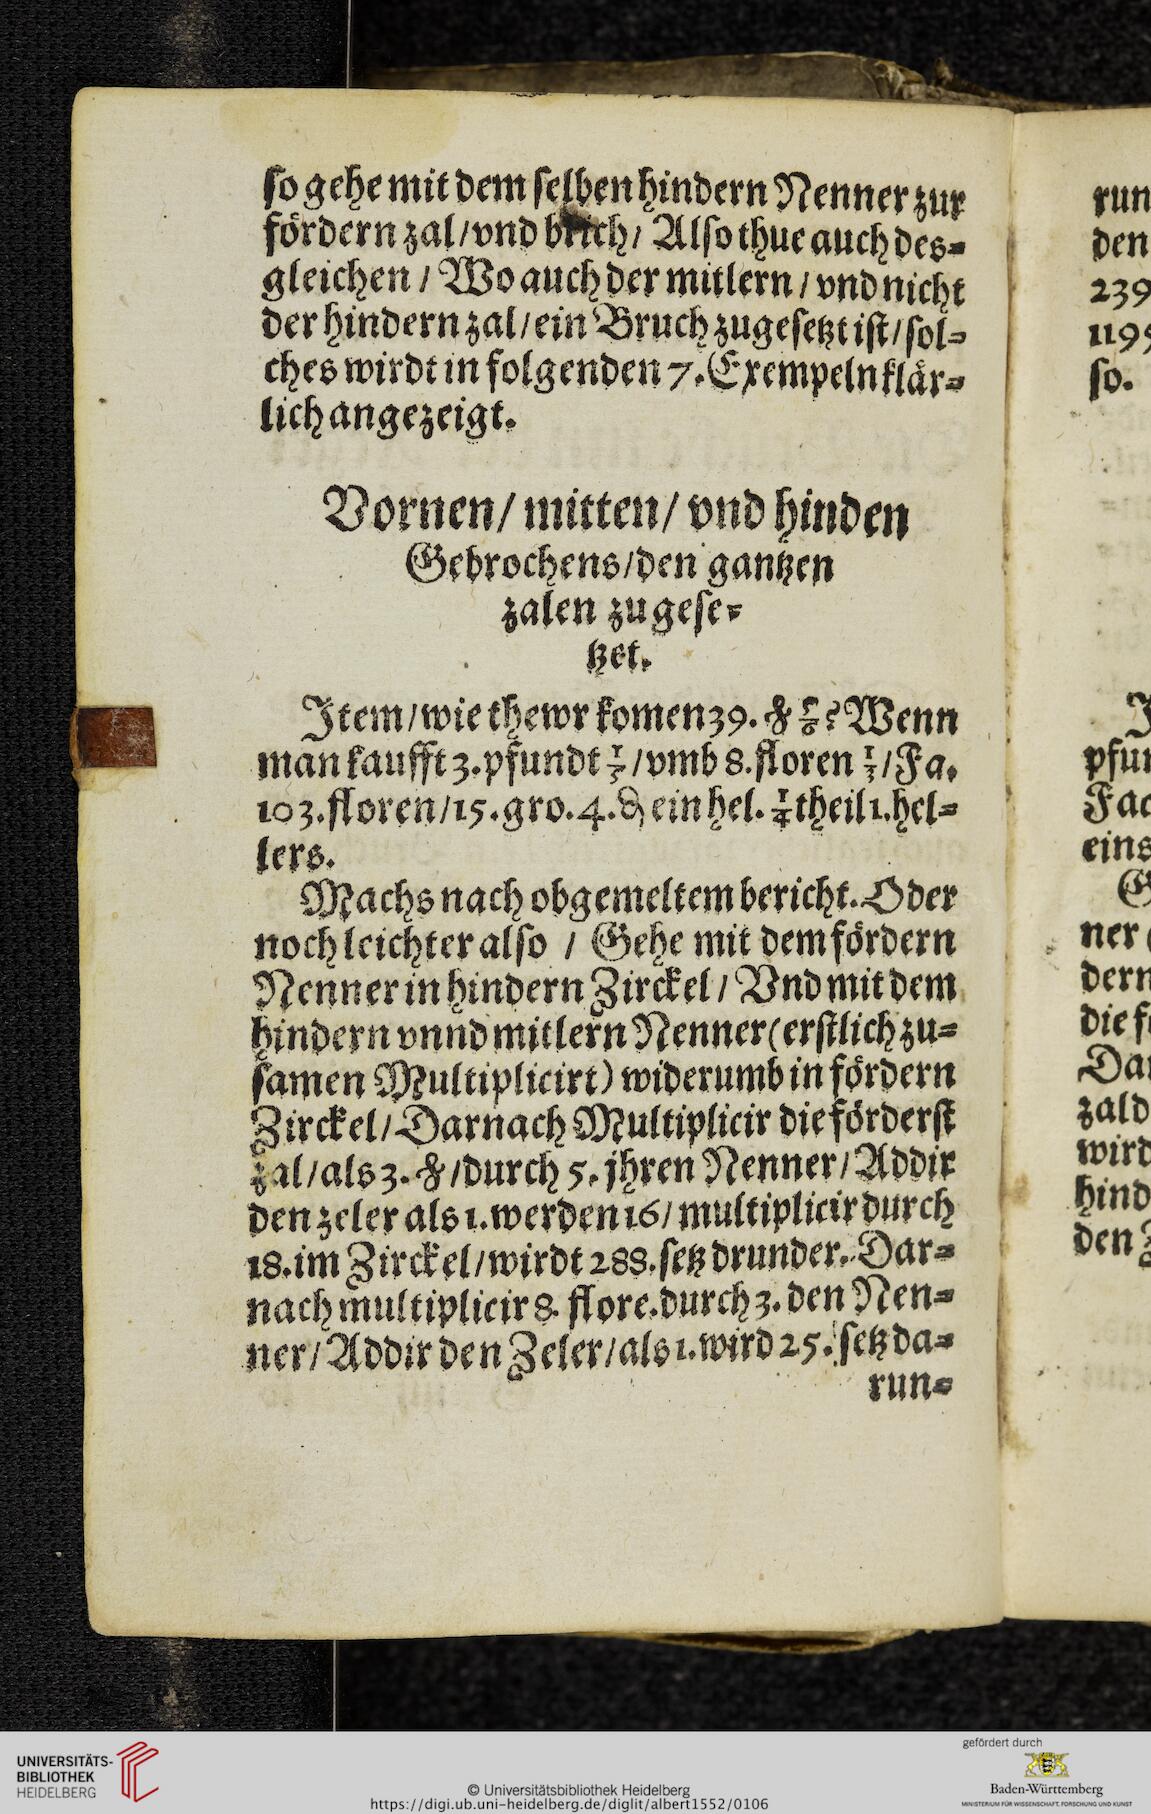 so gehe mit dem selben hindern Nenner zur
fördern zal/vnd brich/ Also thue auch des=
gleichen / Wo auch der mitlern / vnd nicht
der hindern zal/ein Bruch zugesetzt ist/sol=
ches wirdt in folgenden 7. Exempeln klär=
lich angezeigt.
Vornen/ mitten/ vnd hinden
Gebrochens/den gantzen
zalen zugese=
tzet.
Item/wie thewr komen 39. ℔ 5/6? Wenn
man kaufft 3. pfundt 1/5/vmb 8. floren 1/3/Fa.
103. floren/15. gro. 4. ₰ ein hel. 1/4 theil 1. hel=
lers.
Machs nach obgemeltem bericht. Oder
noch leichter also / Gehe mit dem fördern
Nenner in hindern Zirckel / Vnd mit dem
hindern vnnd mitlern Nenner (erstlich zu=
samen Multiplicirt) widerumb in fördern
Zirckel/Darnach Multiplicir die förderst
zal/als 3. ℔/durch 5. jhren Nenner/Addir
den zeler als 1. werden 16/ multiplicir durch
18. im Zirckel/wirdt 288. setz drunder. Dar=
nach multiplicir 8. flore. durch 3. den Nen=
ner/ Addir den Zeler/als 1. wird 25. setz da=
run=
run
den
239
1195
so.
pfun
Fac
eins
G
ner
dern
die f
Dar
zal d
wird
hind
den Z
UNIVERSITÄTS-
BIBLIOTHEK
HEIDELBERG
© Universitätsbibliothek Heidelberg
https://digi.ub.uni-heidelberg.de/diglit/albert1552/0106
gefördert durch
Baden-Württemberg
MINISTERIUM FÜR WISSENSCHAFT, FORSCHUNG UND KUNST